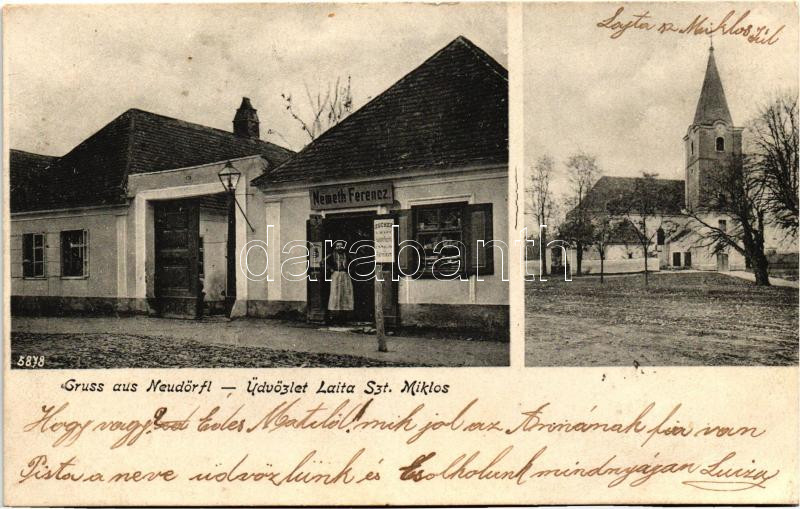 Lajta sz Miklos
Júl
Nemeth Ferencz.
darabanth.com
5878
Gruss aus Neudörfl — Üdvözlet Laita Szt. Miklos
Hogy vagy? Edes Matild! mik jol az Annának fia van
Pista a neve üdvözlünk és Csolkolunk mindnyájan Luiza